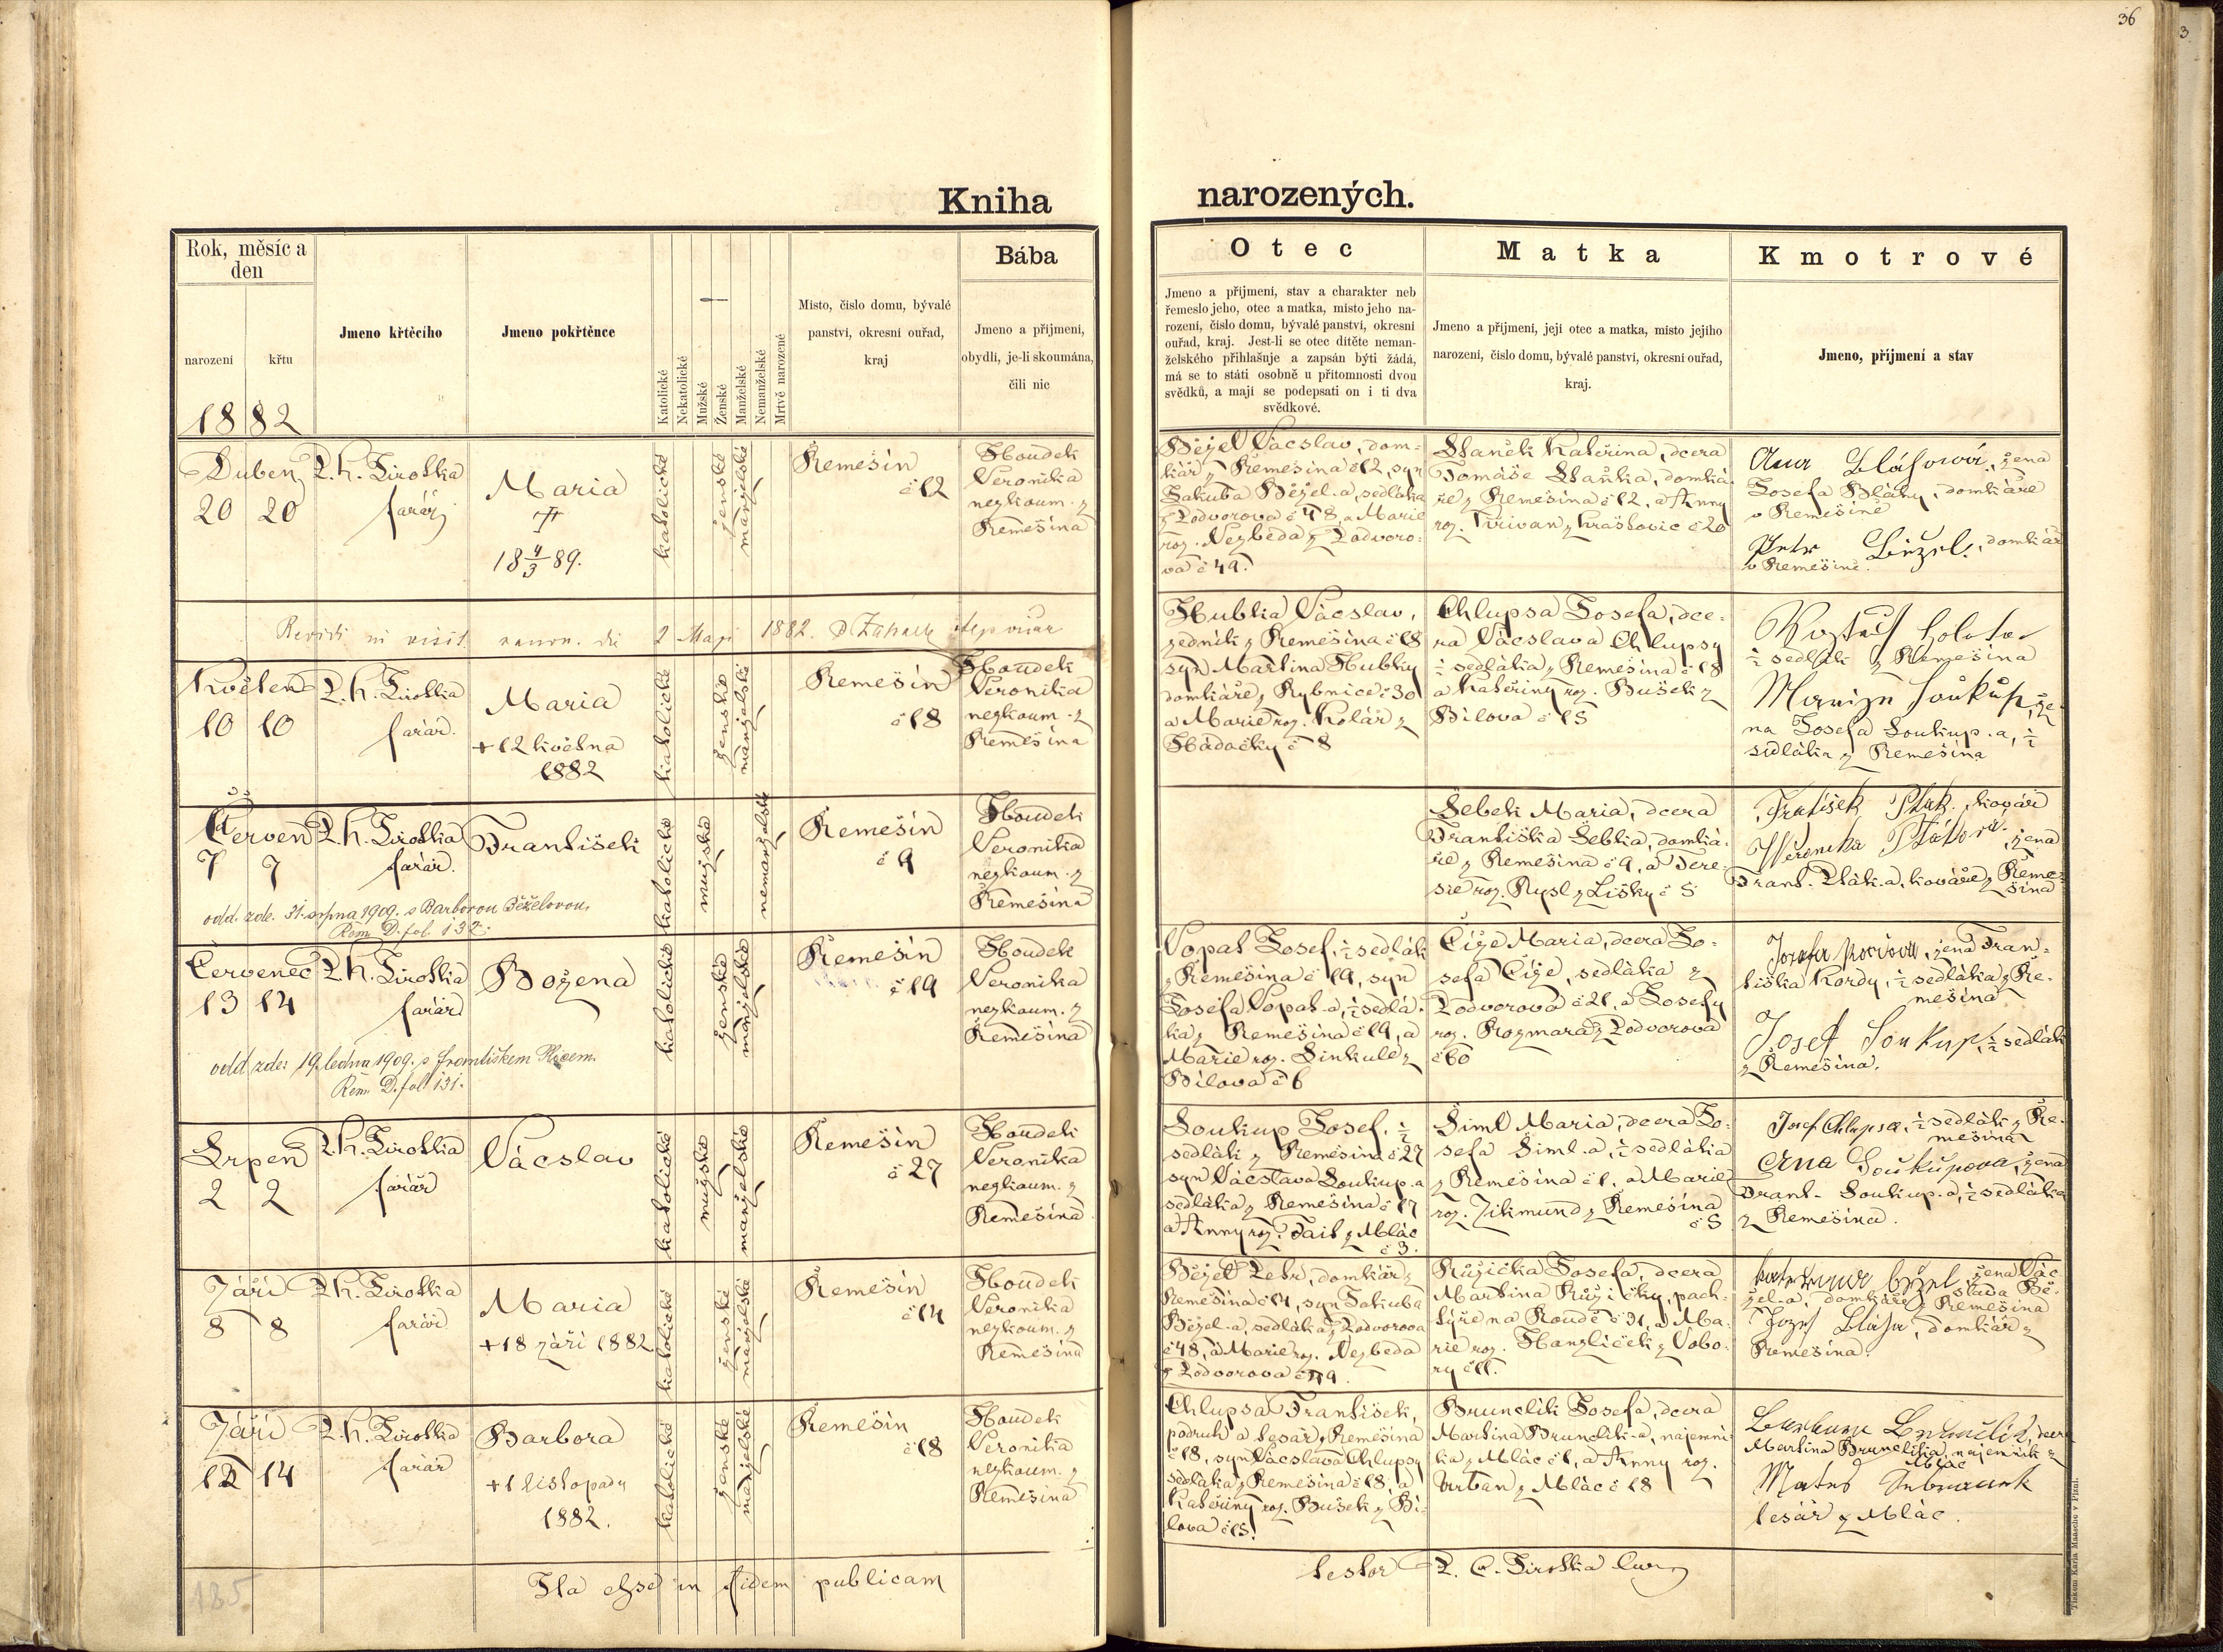 36
Kniha narozených.
Rok, měsíc a den
narození
křtu
Jmeno křtěcího
Jmeno pokřtěnce
Katolické
Nekatolické
Mužské
Ženské
Manželské
Nemanželské
Mrtvě narozené
Místo, číslo domu, bývalé
panství, okresní ouřad,
kraj
Bába
Jmeno a příjmení,
obydlí, je-li skoumána,
čili nic
Otec
Jmeno a příjmení, stav a charakter neb
řemeslo jeho, otec a matka, místo jeho na-
rození, číslo domu, bývalé panství, okresní
ouřad, kraj. Jest-li se otec dítěte neman-
želského přihlašuje a zapsán býti žádá,
má se to státi osobně u přítomnosti dvou
svědků, a mají se podepsati on i ti dva
svědkové.
Matka
Jmeno a příjmení, její otec a matka, místo jejího
narození, číslo domu, bývalé panství, okresní ouřad,
kraj.
Kmotrové
Jmeno, příjmení a stav
1882
Duben
20 20
P. K. Sirotka
farář
Maria
18 4/3 89.
katolické
ženské
manželské
Řemešín
č 12
Houdek
Veronika
nezkoum. z
Řemešína
Běžel Vácslav, dom-
kář z Řemešína č 12, syn
Jakuba Běžel-a, sedláka
z Podvorova č 48, a Marie
roz. Nezbeda z Podvoro-
va č 49.
Staněk Kateřina, dcera
Tomáše Staňka, domká-
ře z Řemešína č 12, a Anny
roz. Křivan z Hrašťovic č 20
Blahová, žena
Josefa Bláhy, domkáře
v Řemešíně
Petr Běžel, domkář
v Řemešíně.
2 Maji 1882.
Květen
10 10
P. K. Sirotka
farář.
Maria
+ 12 května
1882
katolické
ženské
manželské
Řemešín
č 18
Houdek
Veronika
nezkoum. z
Řemešína
Hubka Vácslav,
zedník z Řemešína č 18
syn Martina Hubky
domkáře z Rybnice č 30
a Marie roz. Kolář z
Hádačky č 8
Chlupsa Josefa, dce-
ra Vácslava Chlupsy
½ sedláka z Řemešína č 18
a Kateřiny roz. Bušek z
Bílova č 15
½ sedlák z Řemešína
Soukup, že-
na Josefa Soukup-a, ½
sedláka z Řemešína
Červen
7 7
P. K. Sirotka
farář.
František
odd. zde. 31. srpna 1909. s Barborou Běželovou.
Řem. D. fol. 132.
katolické
mužské
nemanželské
Řemešín
č 9
Houdek
Veronika
nezkoum. z
Řemešína
Šebek Maria, dcera
Františka Šebka, domká-
ře z Řemešína č 9, a Tere-
sie roz. Rysl z Lišky č 5
František Pták, kovář
Ptáková, žena
Frant. Pták-a, kováře z Řeme-
šína
Červenec
13 14
P. K. Sirotka
farář
Božena
odd. zde: 19. ledna 1909. s Františkem
Řem. D. fol. 131.
katolické
ženské
manželské
Řemešín
č 19
Houdek
Veronika
nezkoum. z
Řemešína
Vopat Josef, ½ sedlák
z Řemešína č 19, syn
Josefa Vopat-a, ½ sedlá-
ka z Řemešína č 19, a
Marie roz. Sinkule z
Bílova č 6
Číže Maria, dcera Jo-
sefa Číže, sedláka z
Podvorova č 21, a Josefy
roz. Rozmara z Podvorova
č 60
žena Fran-
tiška Kordy, ½ sedláka z Ře-
mešína
Josef Soukup, ½ sedlák
z Řemešína.
Srpen
2 2
P. K. Sirotka
farář
Vácslav
katolické
mužské
manželské
Řemešín
č 27
Houdek
Veronika
nezkoum. z
Řemešína
Soukup Josef, ½
sedlák z Řemešína č 27
syn Vácslava Soukup-a
sedláka z Řemešína č 17
a Anny roz. Fait z Mlác
č 3.
Šiml Maria, dcera Jo-
sefa Šiml-a, ½ sedláka
z Řemešína č 1, a Marie
roz. Zikmund z Řemešína
č 5
Josef Chlupsa, ½ sedlák z Ře-
mešína
Soukupova, žena
Frant. Soukup-a, ½ sedláka
z Řemešína.
Září
8 8
P. K. Sirotka
farář
Maria
+ 18 září 1882
katolické
ženské
manželské
Řemešín
č 14
Houdek
Veronika
nezkoum. z
Řemešína
Běžel Petr, domkář z
Řemešína č 14, syn Jakuba
Běžel-a, sedláka z Podvorova
č 48, a Marie roz. Nezbeda
z Podvorova č 49.
Růžička Josefa, dcera
Martina Růžičky, pach-
týře na Roudé č 31, a Ma-
rie roz. Hanzlíček z Vobo-
ry č 11.
žena Vác-
slava Bě-
žel-a, domkáře z Řemešína
Josef Bláha, domkář z
Řemešína.
Září
12 14
P. K. Sirotka
farář
Barbora
+ 1 listopadu
1882.
katolické
ženské
manželské
Řemešín
č 18
Houdek
Veronika
nezkoum. z
Řemešína
Chlupsa František,
podruh a tesař z Řemešína
č 18, syn Vácslava Chlupsy
sedláka z Řemešína č 18, a
Kateřiny roz. Bušek z Bí-
lova č 15.
Brunclík Josefa, dcera
Martina Brunclík-a, nájemní-
ka z Mlác č 1, a Anny roz.
Urban z Mlác č 18
dcera
Martina Brunclíka, nájemník z
Mlác
tesář z Mlác.
185
Ita esse in fidem publicam
testor P. C. Sirotka
Tiskem Karla Maascho v Plzni.